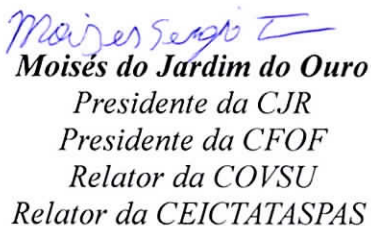 Moisés Sergio
Moisés do Jardim do Ouro
Presidente da CJR
Presidente da CFOF
Relator da COVSU
Relator da CEICTATASPAS